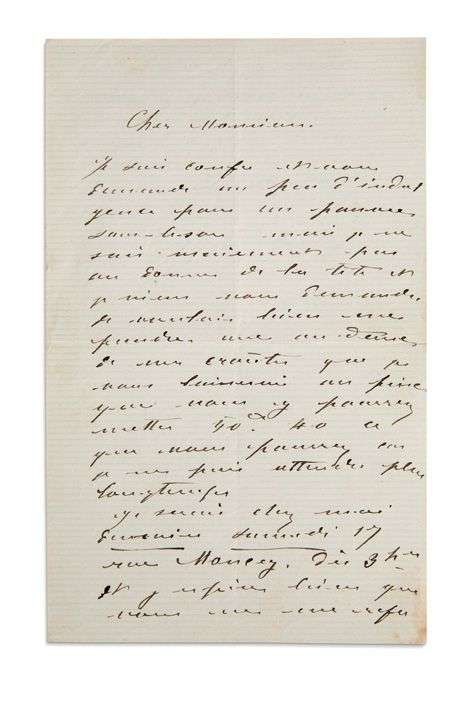 Cher Monsieur.
Je suis confus et vous
demande un peu d'indul
gence pour un pauvre
sans-le-sou mais je ne
sais vraiment pas
où donner de la tête et
je viens vous demander
de vouloir bien me
prendre une ou deux
de mes croûtes que je
vous laisserai au prix
que vous y pourrez
mettre 40 ce
que vous pourrez car
je ne puis attendre plus
longtemps
Je serai chez moi
demain samedi 17
rue Moncey. dès 3 hres
et j'espère bien que
vous me refu